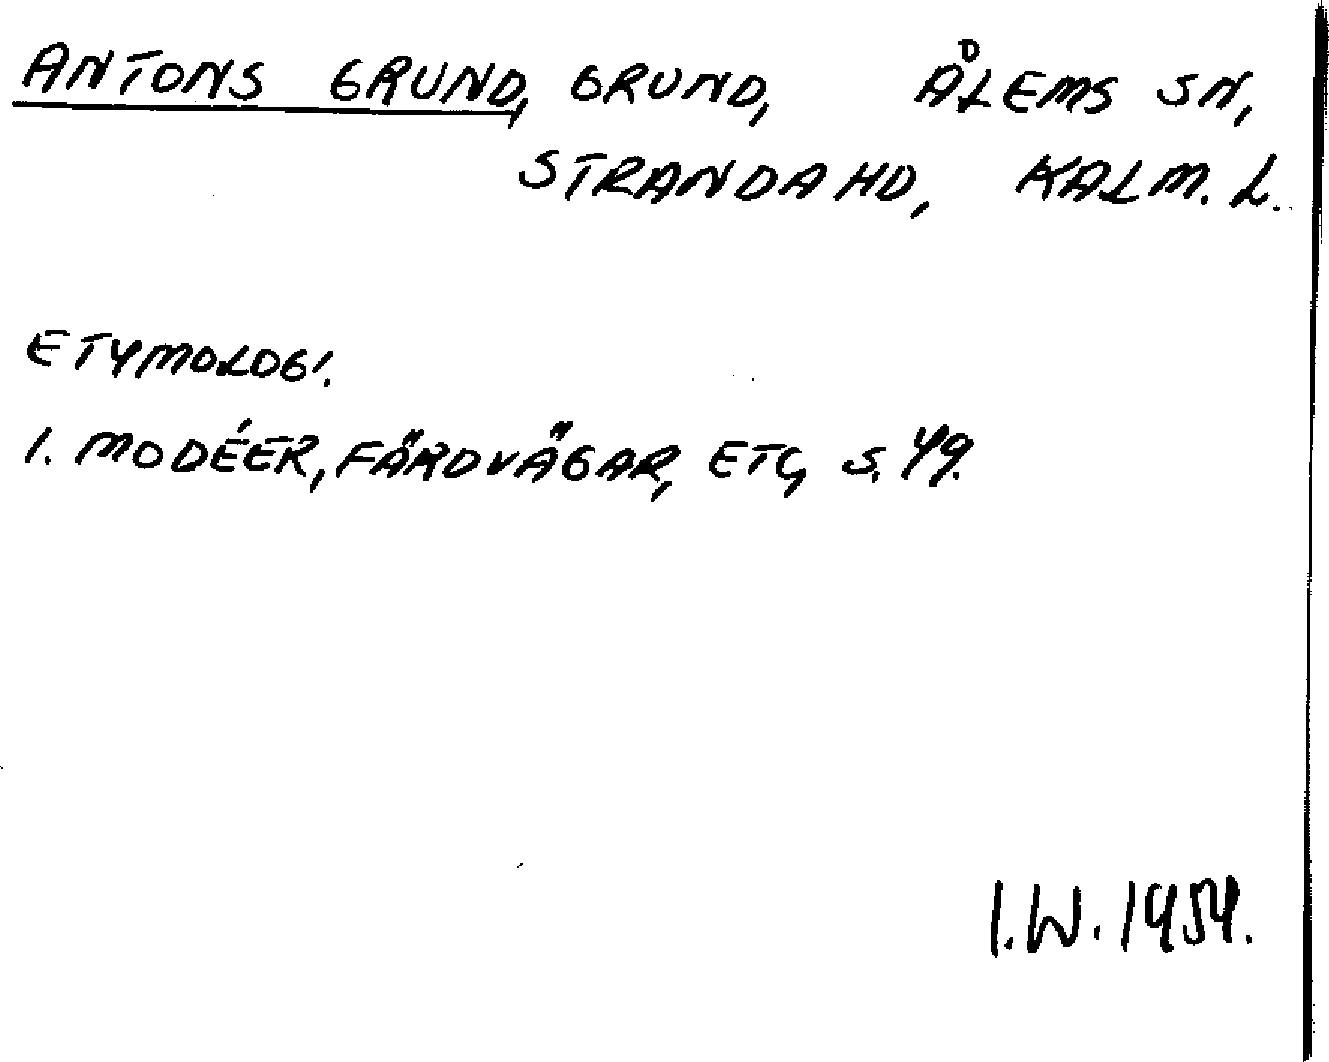 ANTONS GRUND, GRUND, ÅLEMS SN,
STRANDA HD, KALM. L.
ETYMOLOGI.
I. MODÉER, FÄRDVÄGAR, ETC, S. 49.
I.W. 1954.